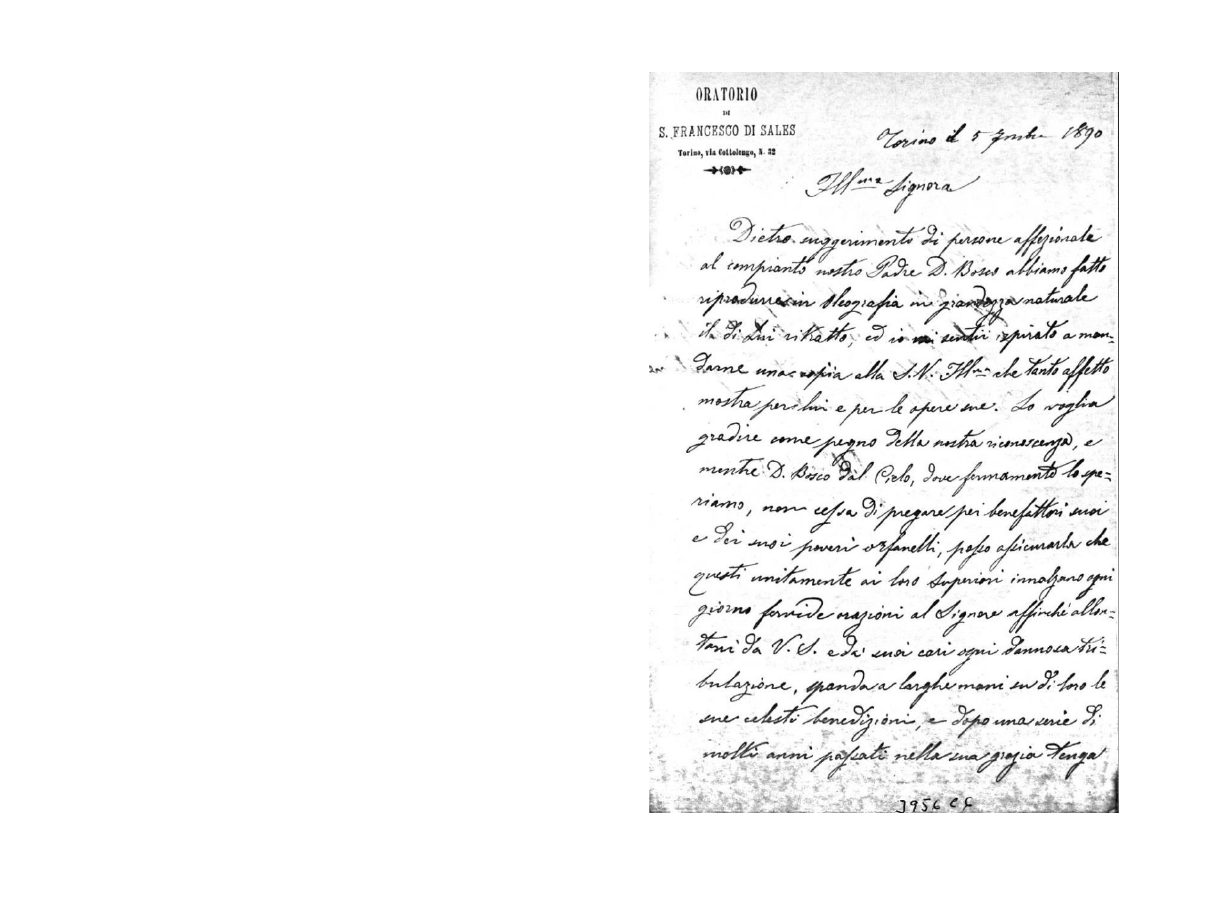 ORATORIO
DI
S. FRANCESCO DI SALES
Torino, via Cottolengo, N. 32
Torino il 5 7mbre 1890
Ill.ma Signora
Dietro suggerimento di persone affezionate
al compianto nostro Padre D. Bosco abbiamo fatto
riprodurre in oleografia in grandezza naturale
il di Lui ritratto, ed io mi sentii ispirato a man=
darne una copia alla S.V. Ill.ma che tanto affetto
mostra per lui e per le opere sue. Lo voglia
gradire come pegno della nostra riconoscenza, e
mentre D. Bosco dal Cielo, dove fermamente lo spe=
riamo, non cessa di pregare pei benefattori suoi
e dei suoi poveri orfanelli, posso assicurarla che
questi unitamente ai loro Superiori innalzano ogni
giorno fervide orazioni al Signore affinché allon=
tani da V. S. e da' suoi cari ogni dannosa tri=
bulazione, spanda a larghe mani su di loro le
sue celesti benedizioni, e dopo una serie di
molti anni passati nella sua grazia tenga
3956 C6